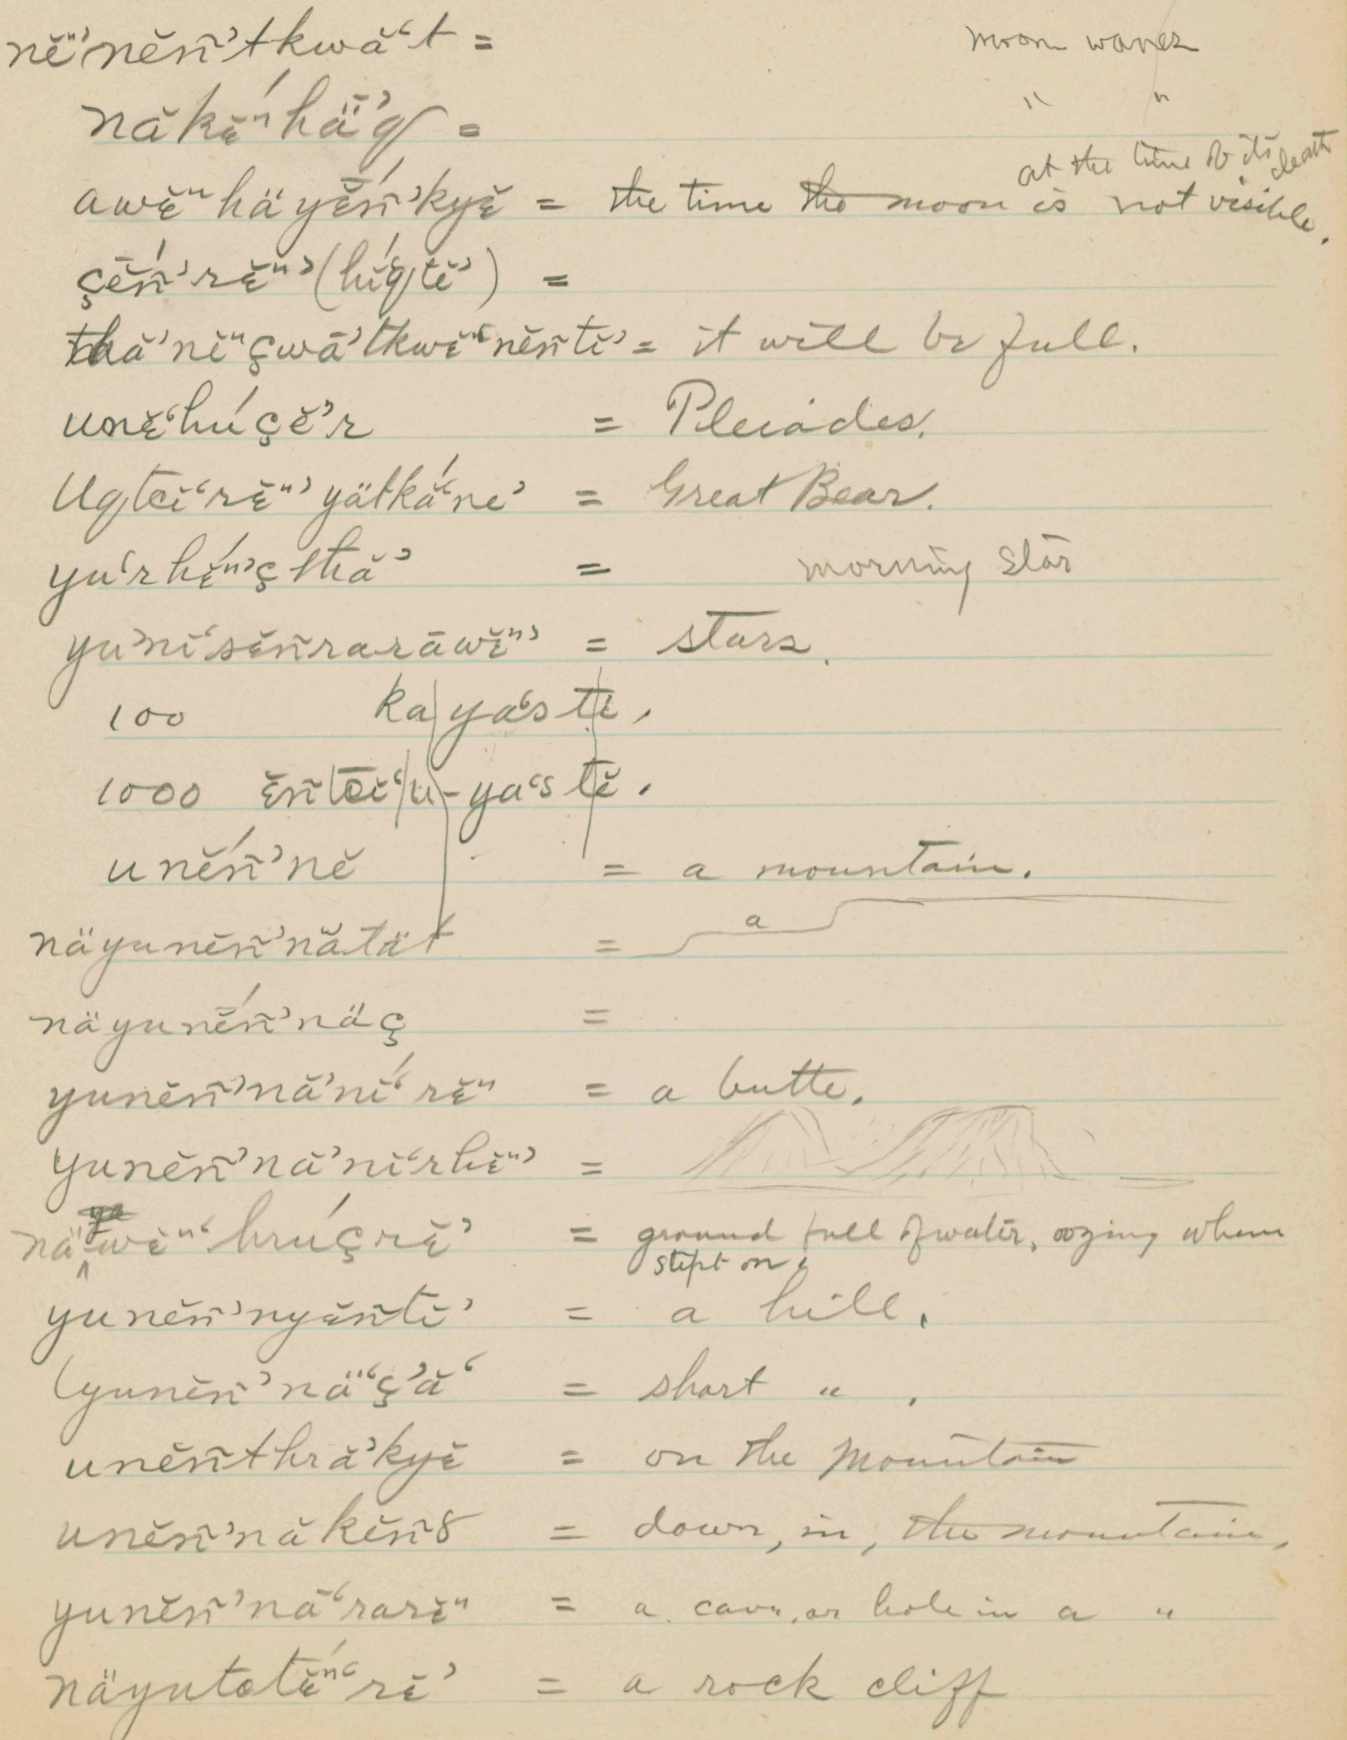 nĕⁿ’nĕñ’tkwă‘t = moon wanes
năkĕ́ⁿhä’q = " "
at the time of its death
awĕⁿhäyĕ́ñ’kyĕ = the time the moon is not visible.
çĕ́ñ’rĕⁿ’(hí‘qtĕ’) =
thă’nĕⁿçwă’tkwĕⁿ‘nĕñtĭ’ = it will be full.
unĕ‘húçĕ’r = Pleiades.
Uqtcĭ‘rĕⁿ’ yätkắ‘ne’ = Great Bear.
yu‘rhĕ́ⁿ’çthă’ = morning star
yu’nĭ‘sĕñrarāwĕⁿ’ = stars.
100 kaya‘stĭ.
1000 ĕñtcĭ‘u-ya‘stĭ.
unĕ́ñ’nĕ = a mountain.
a
näyunĕñ’nătät =
näyunĕ́ñ’näç =
yunĕñ’nă’nĭ́‘rĕⁿ = a butte.
yunĕñ’nă’nĭ‘rhĕⁿ’ =
näwĕⁿ‘hrúçrĕ’ = ground full of water, oozing when
stept on.
yunĕñ’nyĕñtĭ’ = a hill.
(yunĕñ’nä‘ç’ă‘ = short " .
unĕñthră’kyĕ = on the mountain
unĕñ’năkĕñ8 = down, in, the mountain,
yunĕñ’nă‘rarĕⁿ = a cave, or hole in a "
näyutetĕ́ⁿ‘rĕ’ = a rock cliff